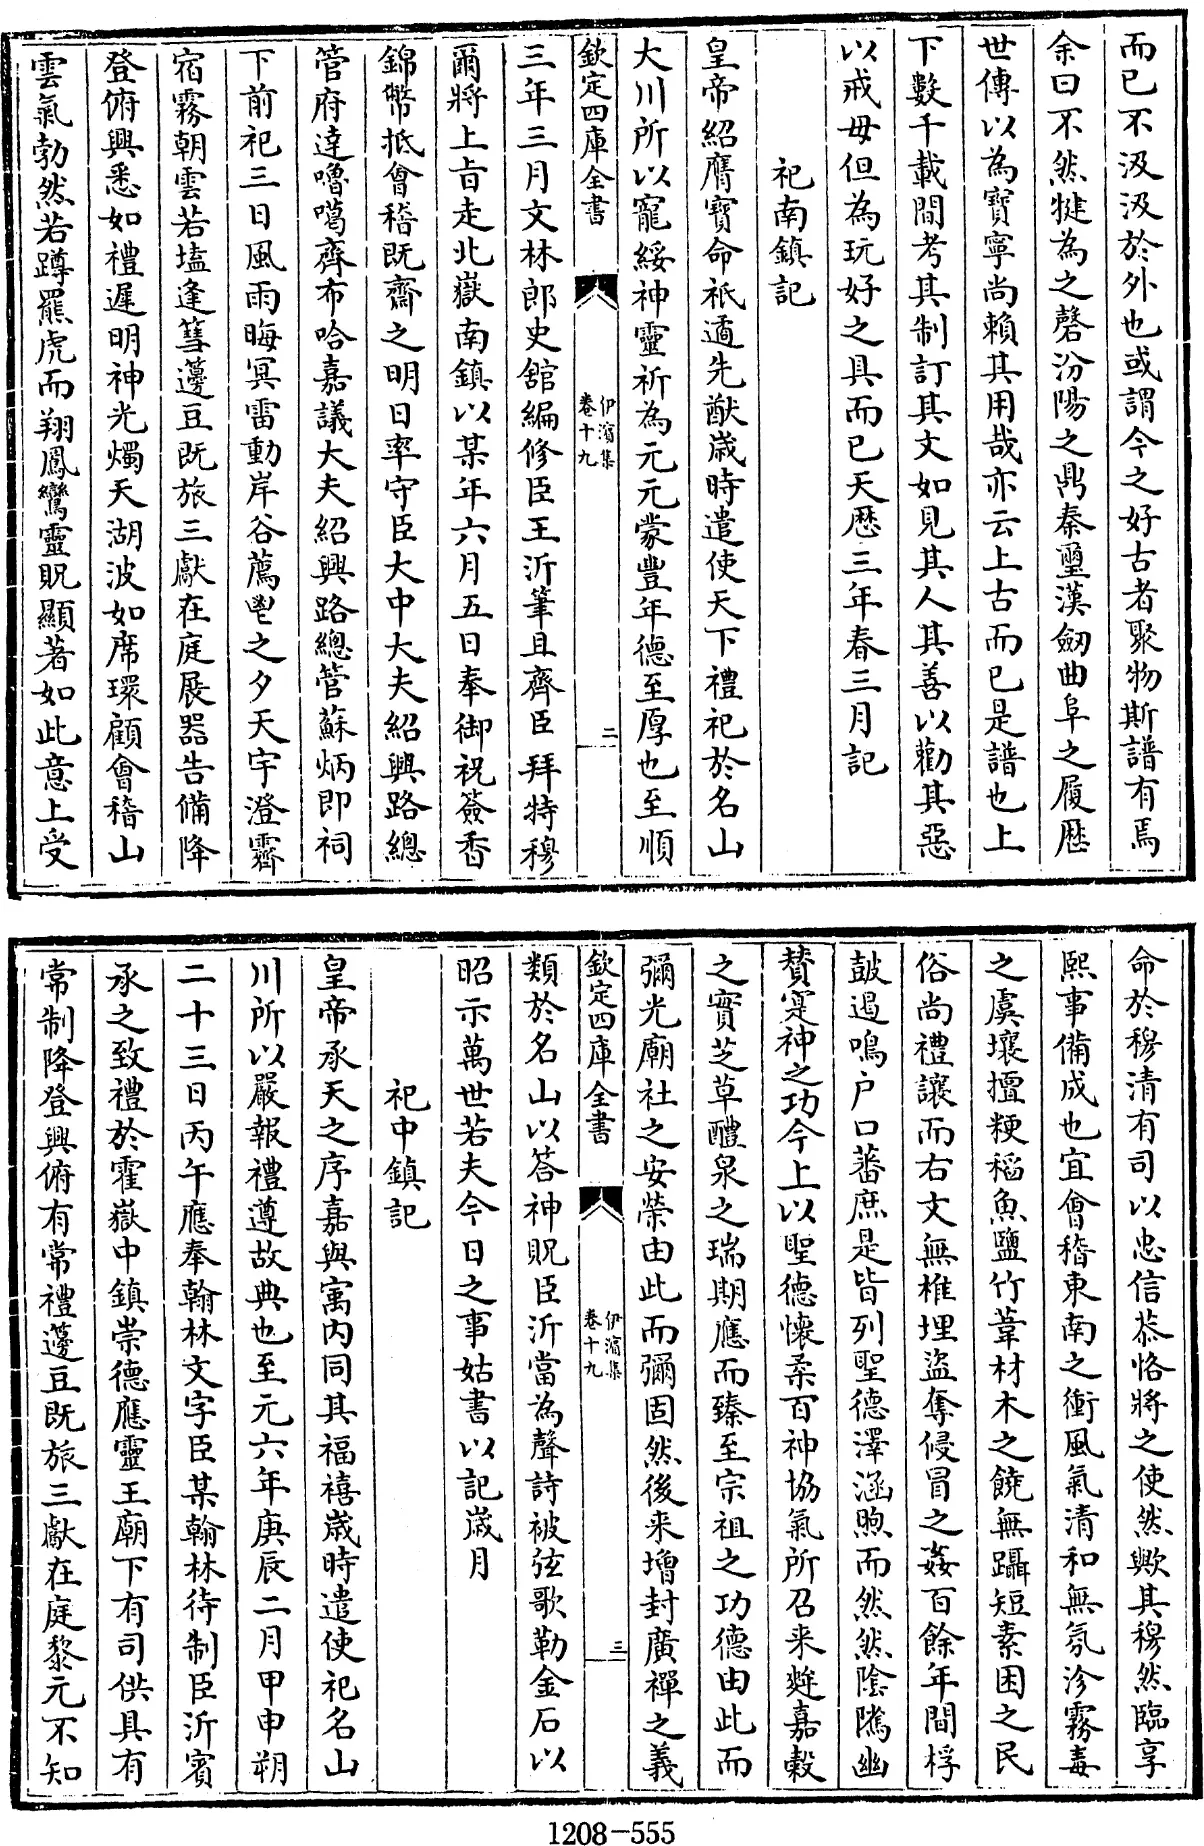 而已不汲汲於外也或謂今之好古者聚物斯譜有焉
余曰不然犍為之磬汾陽之鼎秦璽漢劒曲阜之履歴
世傳以為寳寧尚賴其用哉亦云上古而已是譜也上
下數千載間考其制訂其文如見其人其善以勸其惡
以戒毋但為玩好之具而已天厯三年春三月記
祀南鎮記
皇帝紹膺寳命祇遹先猷歳時遣使天下禮祀於名山
大川所以寵綏神靈祈為元元蒙豐年德至厚也至順
欽定四庫全書
伊濱集
卷十九
二
三年三月文林郎史舘編修臣王沂筆且齊臣拜特穆
爾將上旨走北嶽南鎮以某年六月五日奉御祝簽香
錦幣抵㑹稽既齋之明日率守臣大中大夫紹興路總
管府達嚕噶齊布哈嘉議大夫紹興路總管蘇炳即祠
下前祀三日風雨晦冥雷動岸谷薦鬯之夕天宇澄霽
宿霧朝雲若㙮逢篲籩豆既旅三獻在庭展器告備降
登俯興悉如禮遲明神光燭天湖波如席環顧㑹稽山
雲氣勃然若蹲羆虎而翔鳳鸞靈貺顯著如此意上受
命於穆清有司以忠信恭恪將之使然歟其穆然臨享
熈事備成也宜㑹稽東南之衝風氣清和無氛沴霧毒
之虞壤擅粳稻魚鹽竹葦材木之饒無躡短素困之民
俗尚禮讓而右文無椎埋盗奪侵冒之姦百餘年間桴
鼓遏鳴户口蕃庶是皆列聖德澤涵煦而然然陰隲幽
賛寔神之功今上以聖德懐柔百神協氣所召来麰嘉穀
之實芝草醴泉之瑞期應而臻至宗祖之功德由此而
彌光廟社之安榮由此而彌固然後来增封廣禪之義
欽定四庫全書
伊濱集
卷十九
三
類於名山以答神貺臣沂當為聲詩被弦歌勒金石以
昭示萬世若夫今日之事姑書以記歳月
祀中鎮記
皇帝承天之序嘉與寓内同其福禧歳時遣使祀名山
川所以嚴報禮遵故典也至元六年庚辰二月甲申朔
二十三日丙午應奉翰林文字臣某翰林待制臣沂賓
承之致禮於霍嶽中鎮崇德應靈王廟下有司供具有
常制降登興俯有常禮籩豆既旅三獻在庭黎元不知
1208-555